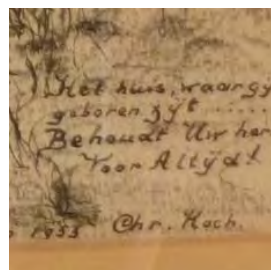 Het huis, waar gy
geboren zyt .....
Behoudt Uw her
Voor Altyd!
1953 Chr. Hoch.